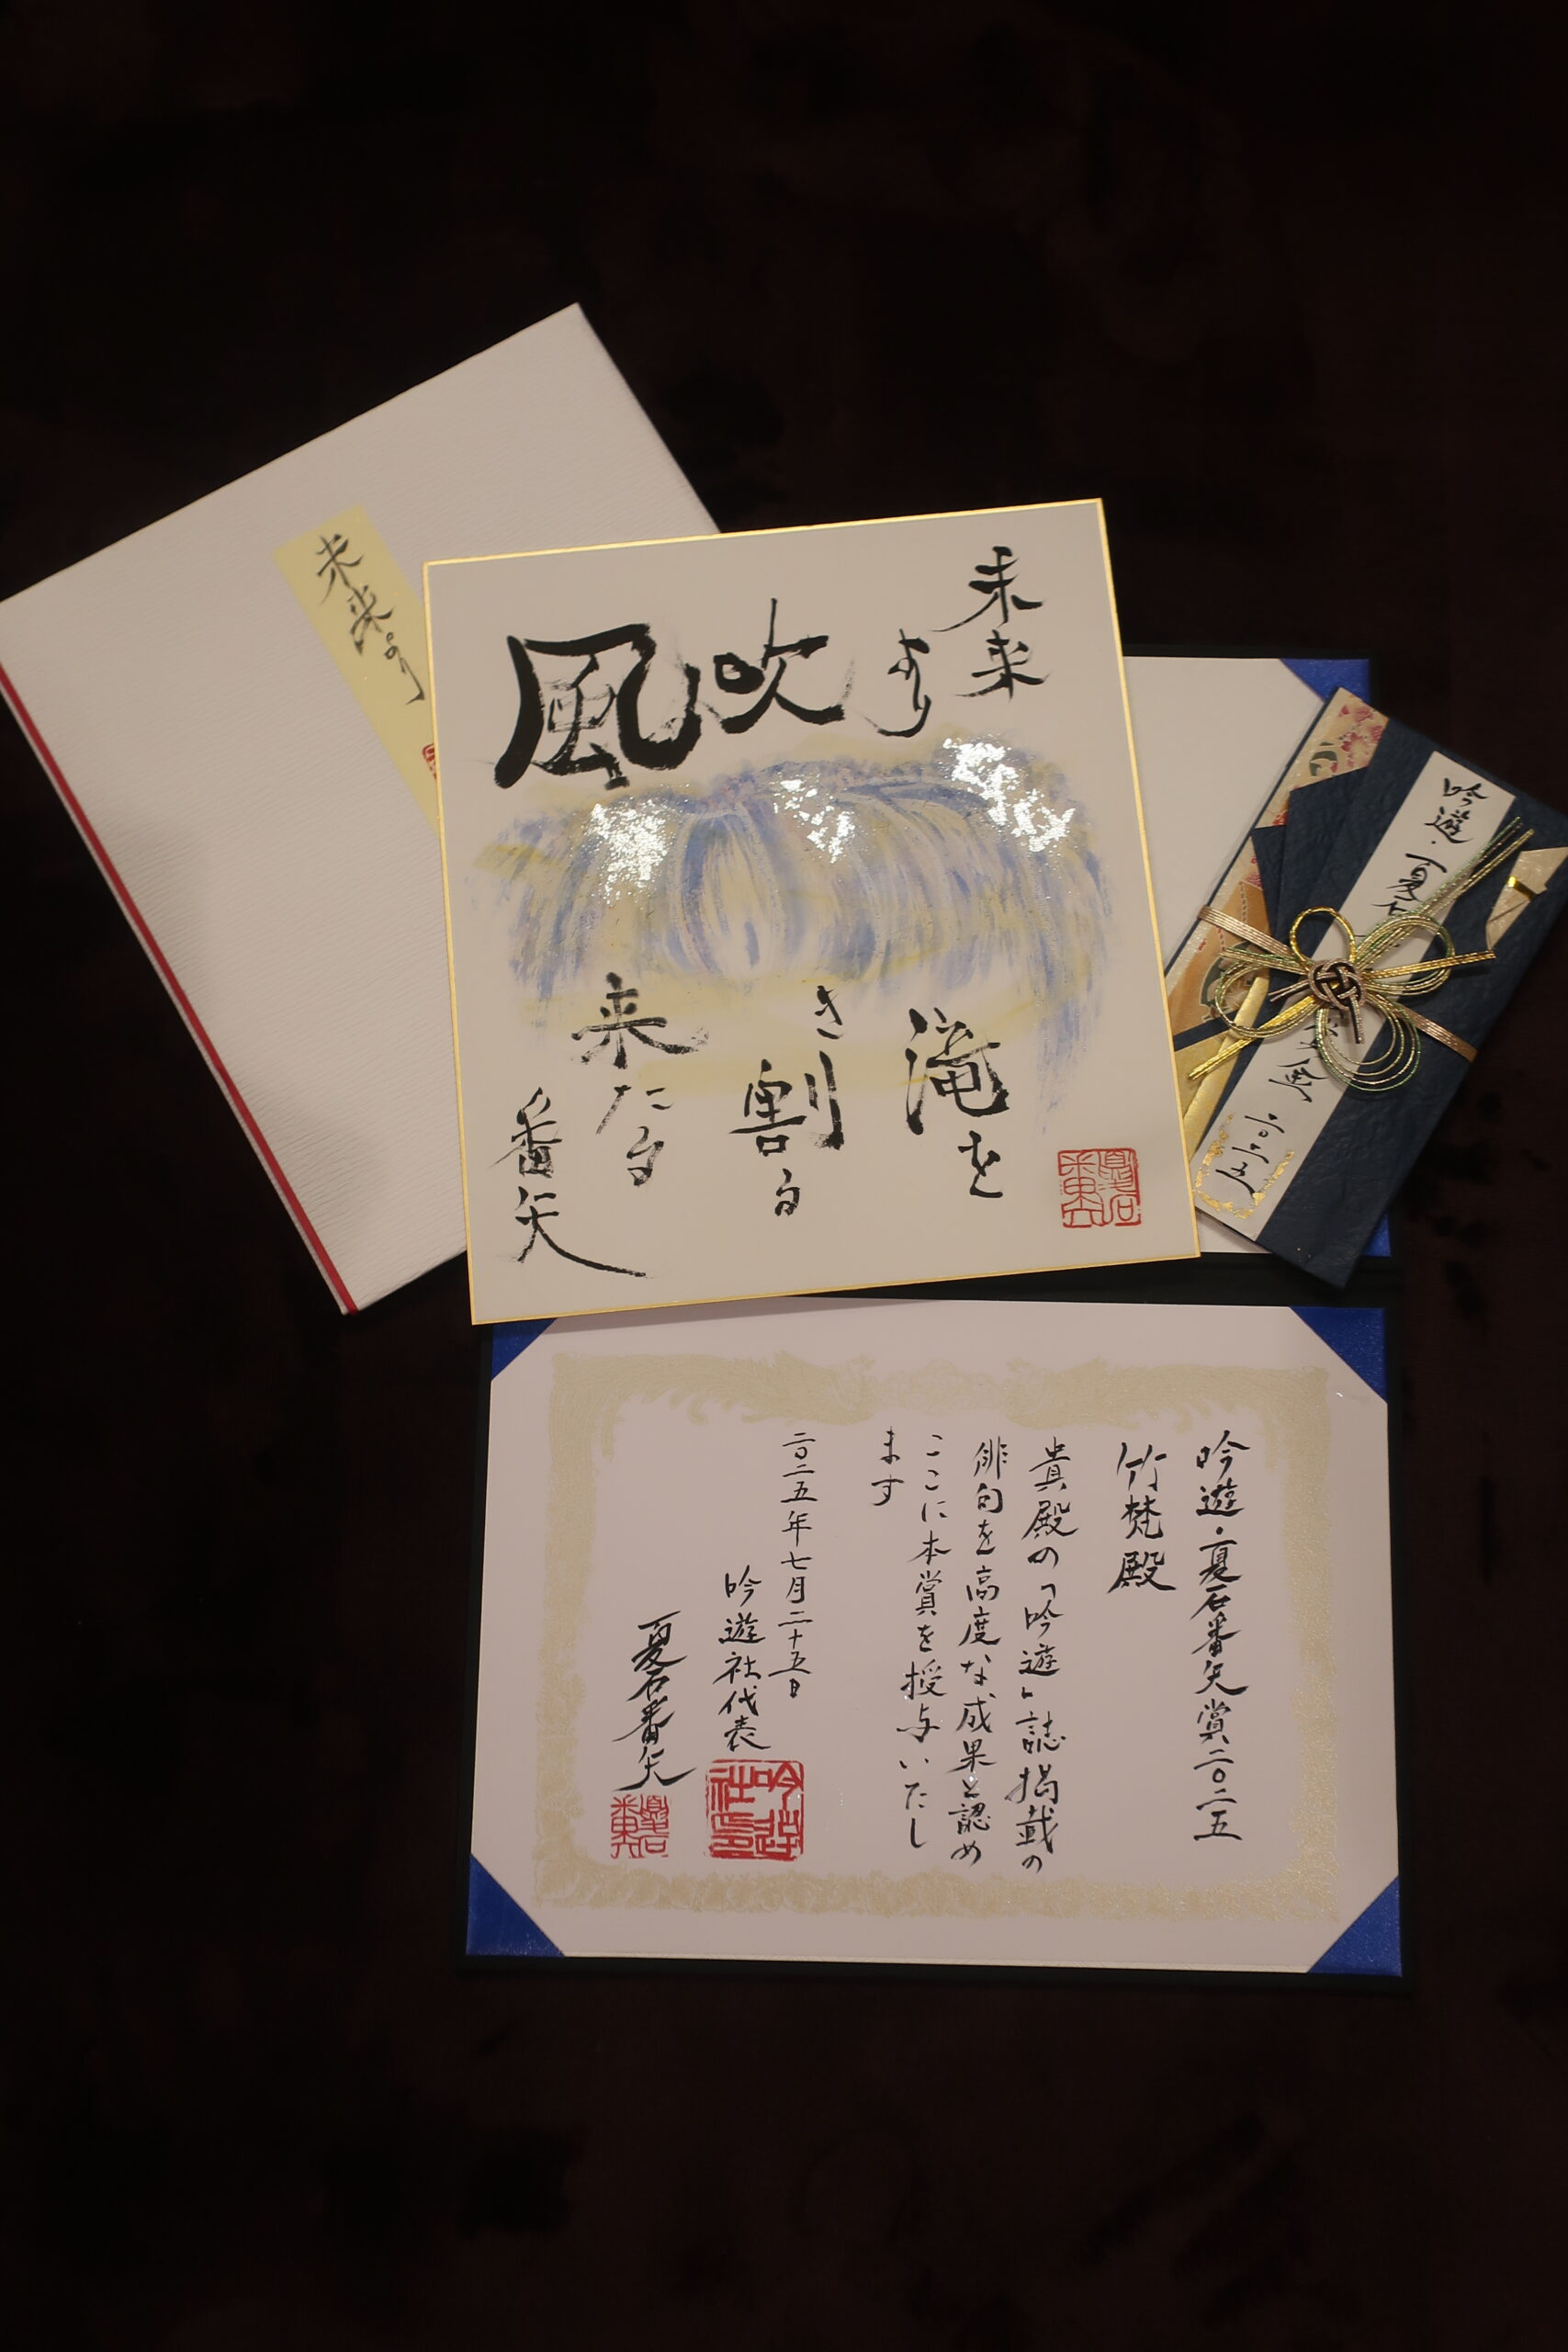 未来より
未来
より
滝を
吹
き割る
風
来たる
番矢
吟遊・夏石
賞金
二〇二五
吟遊・夏石番矢賞二〇二五
竹梵殿
貴殿の「吟遊」誌掲載の
俳句を高度な成果と認め
ここに本賞を授与いたし
ます
二〇二五年七月二十五日
吟遊社代表
夏石番矢